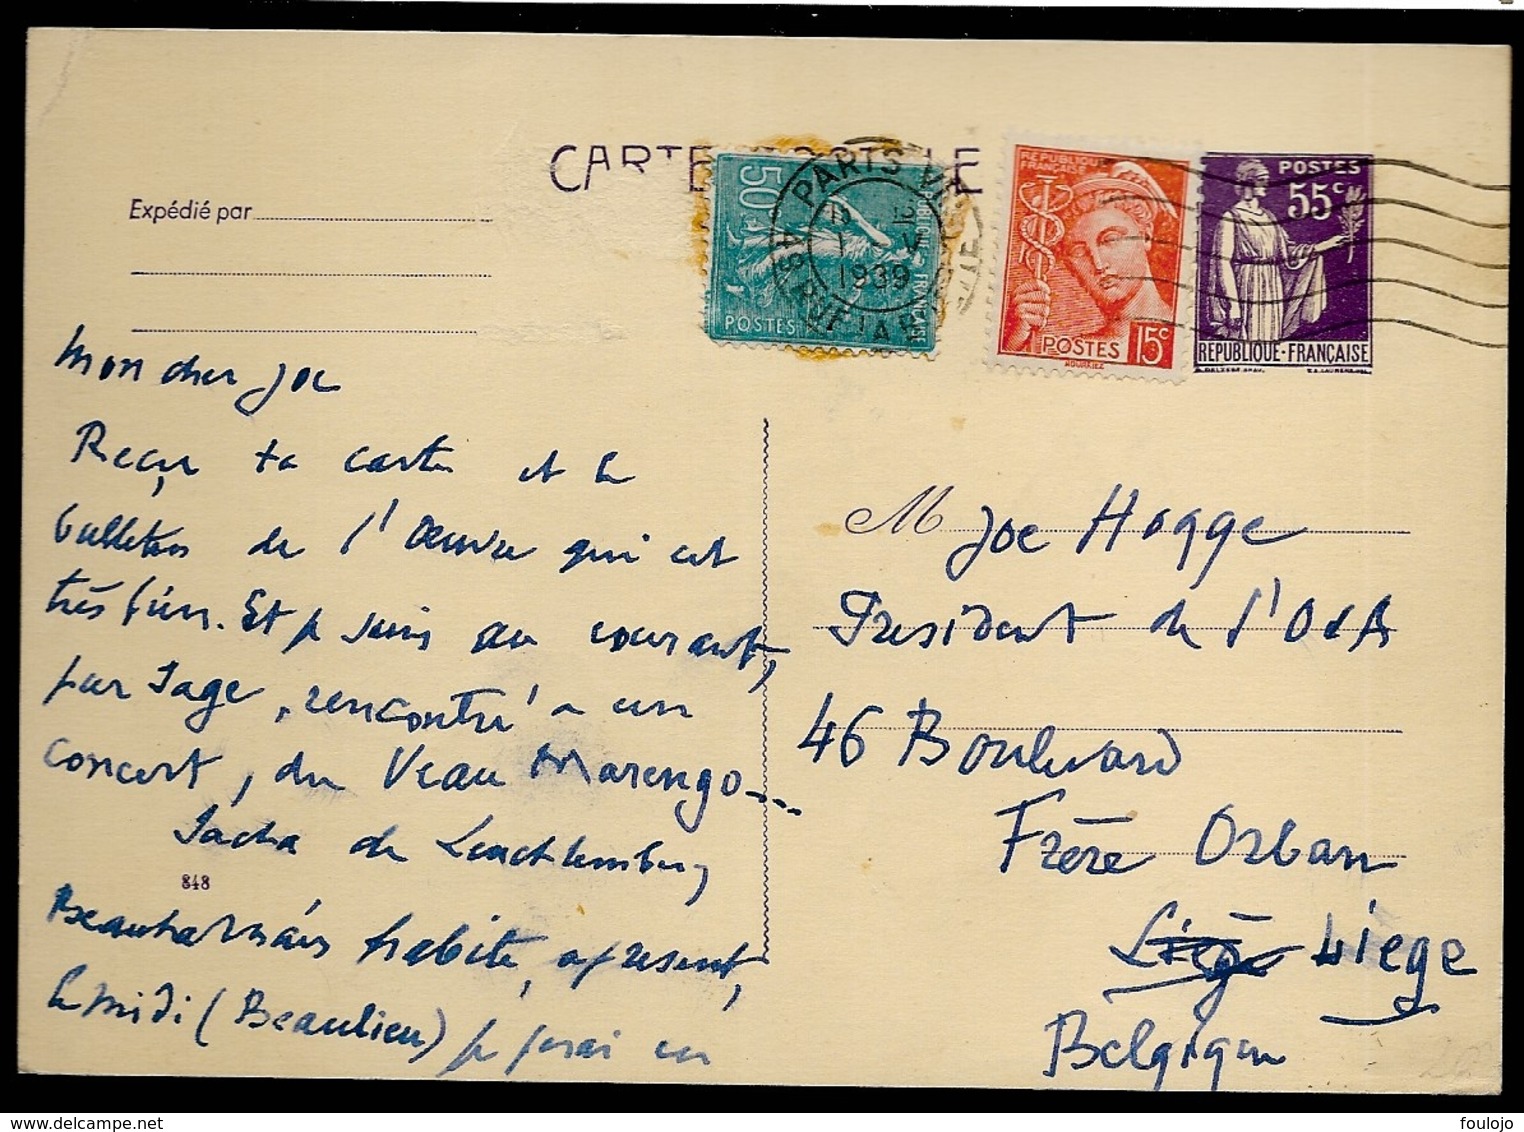 CARTE POSTALE
Expédié par
50c
RÉPUBLIQUE FRANÇAISE
POSTES
PARIS
1 V
1939
RÉPUBLIQUE
FRANÇAISE
15c
POSTES
POSTES
55c
RÉPUBLIQUE·FRANÇAISE
Mon cher Joe
Reçu ta carte et le
bulletin de l'Oeuvre qui est
très bien. Et je suis au courant,
par Sage, rencontré à un
concert, du Veau Marengo....
Sacha de
848
Beauharnais habite, a présent,
le midi (Beaulieu) je ferai un
M Joe Hogge
President de l'
46 Boulevard
Frère Orban
Liège Liege
Belgique
foulojo